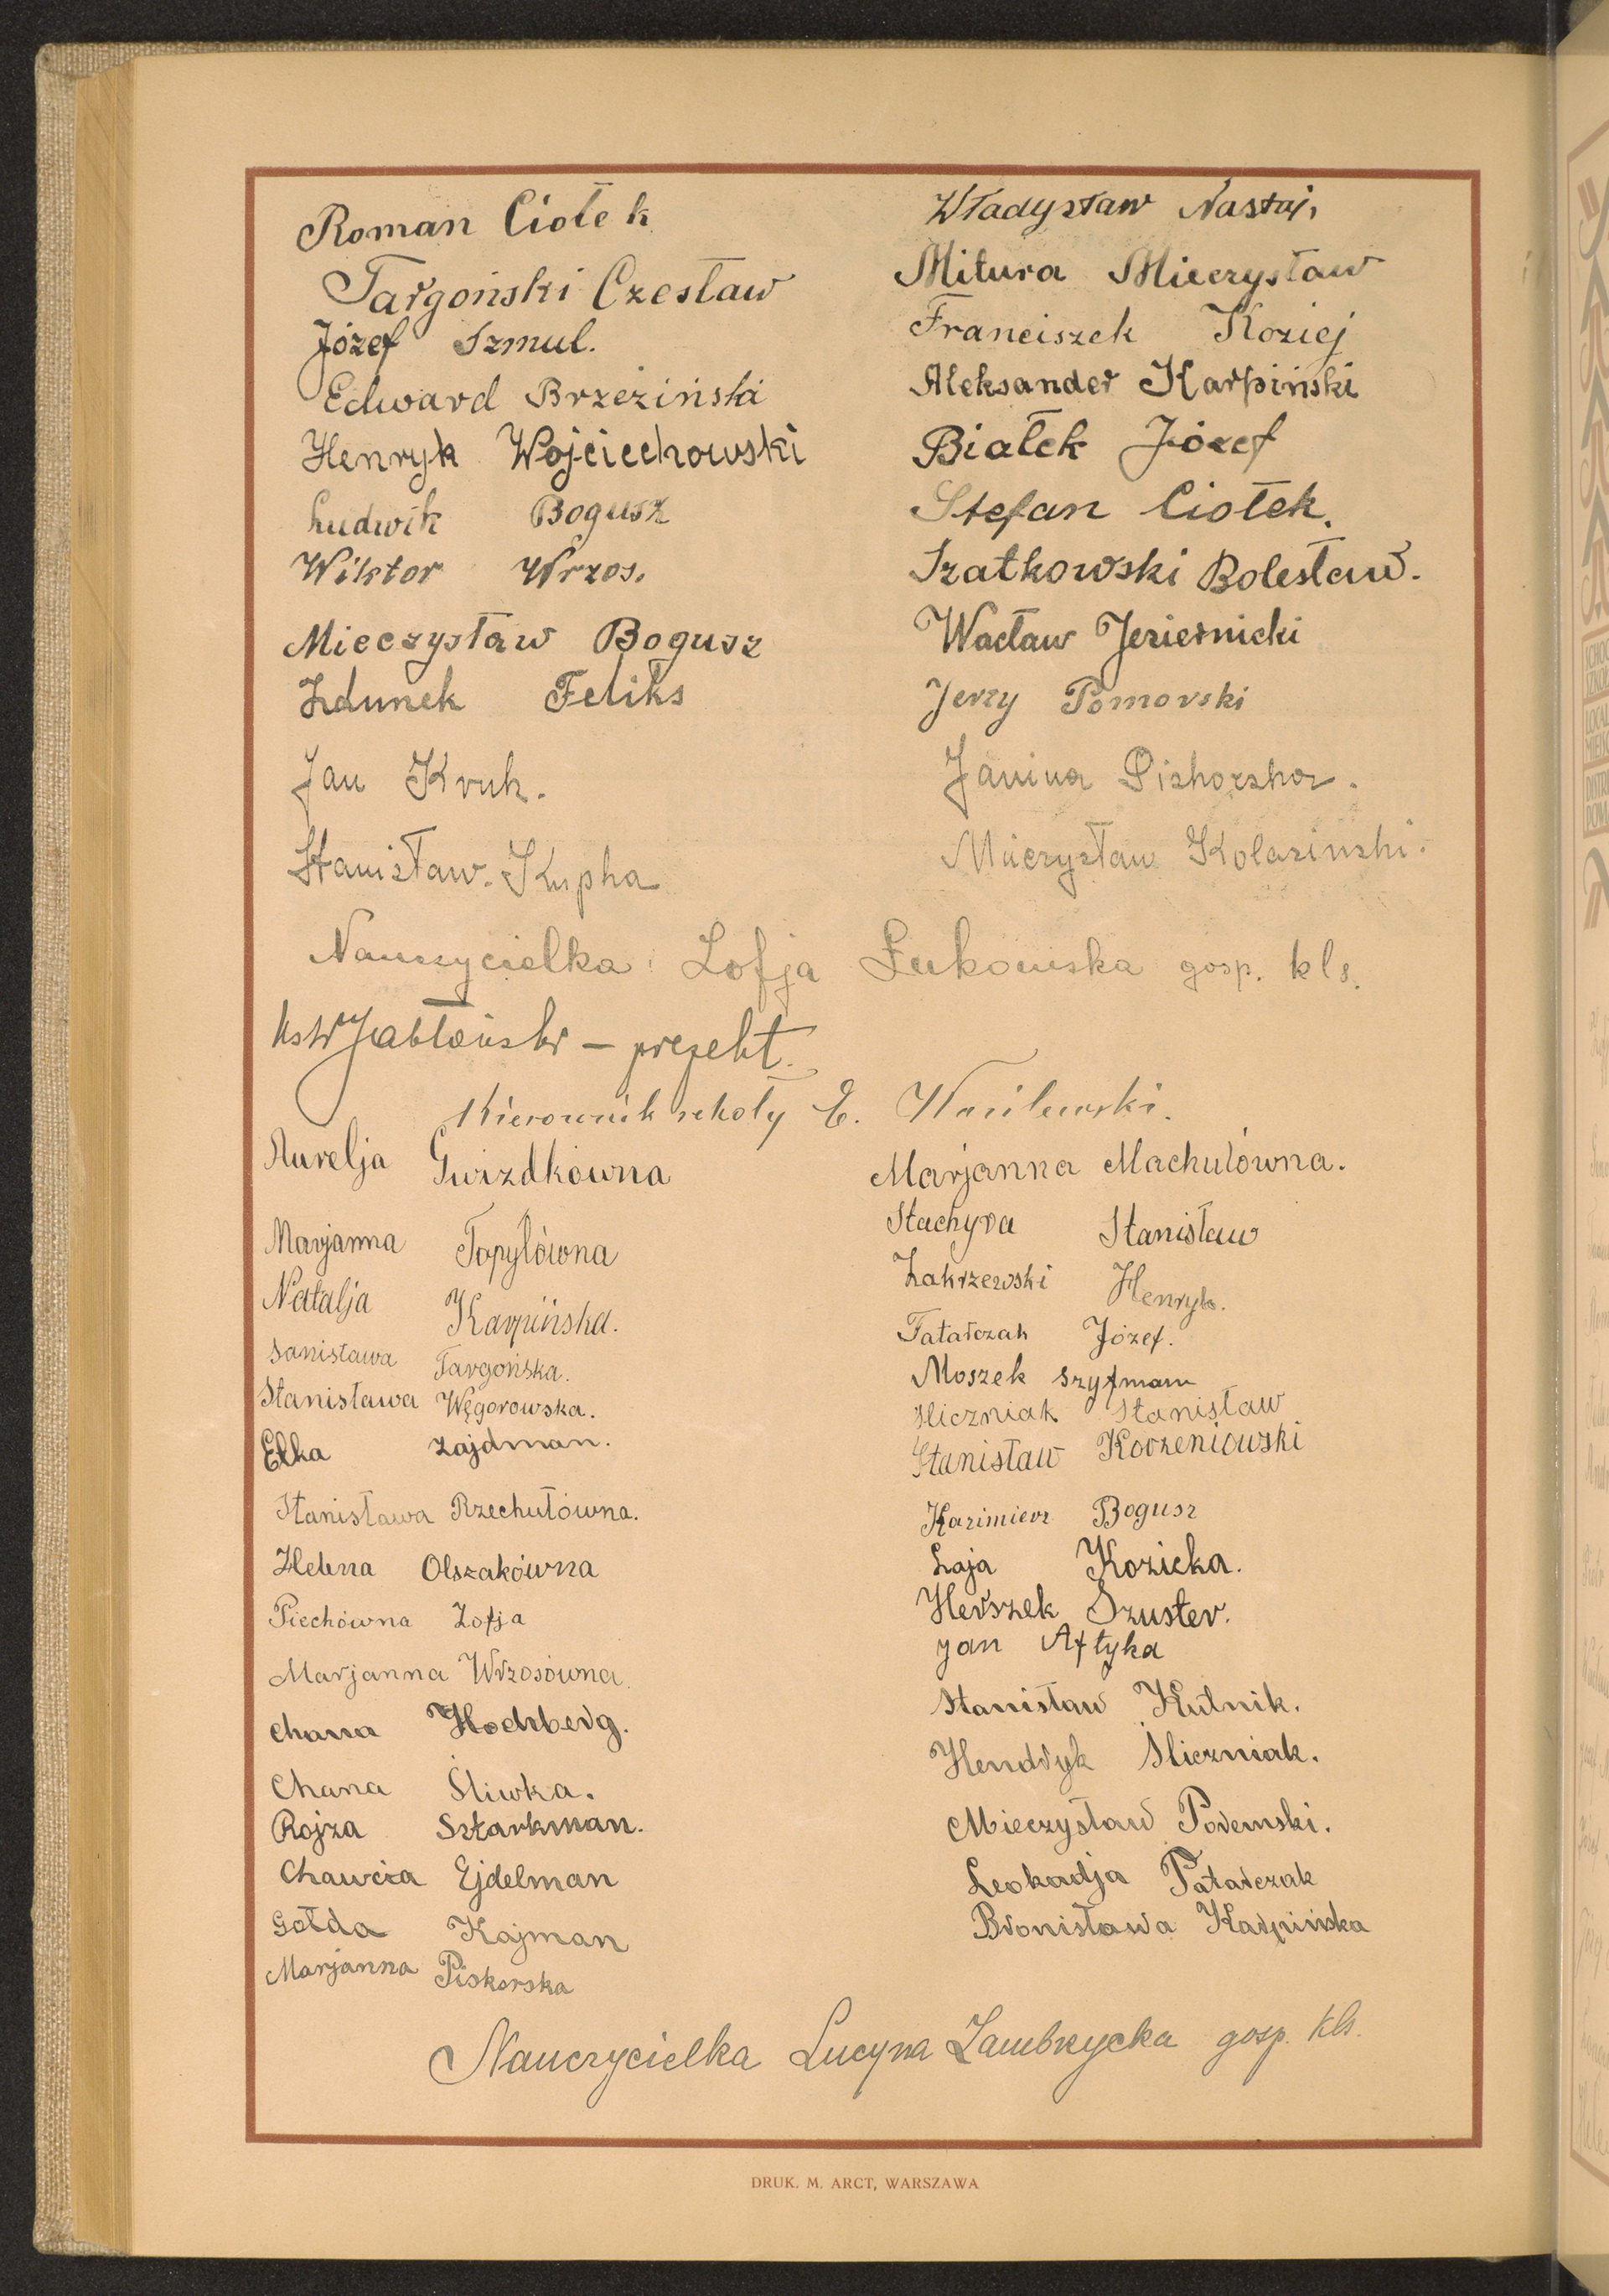 Roman Ciołek
Targoński Czesław
Józef Szmul.
Edward Brzeziński
Henryk Wojciechowski
Ludwik Bogusz
Wiktor Wrzos.
Mieczysław Bogusz
Zdunek Feliks
Jan Kruk.
Stanisław Kupka
Władysław Nastaj.
Mitura Mieczysław
Franciszek Koziej
Aleksander Karpiński
Białek Józef
Stefan Ciołek.
Szatkowski Bolesław.
Wacław Jeziernicki
Jerzy Pomorski
Janina Piskorska.
Mieczysław Kolasinski.
Nauczycielka Zofja Łukowska gosp. kls.
Ks W Jabłoński – prefekt.
Kierownik szkoły E. Wasilewski.
Aurelja Gwizdkówna
Marjanna Topylówna
Natalja Karpińska.
Sanisława Targońska.
Stanisława Węgorowska.
Elka Zajdman.
Stanisława Rzechułówna.
Helena Olszakówna
Piechówna Zofja
Marjanna Wrzosówna
Chana Hochberg.
Chana Śliwka.
Rojza Sztarkman.
Chawcia Ejdelman
Gołda Kajman
Marjanna Piskorska
Marjanna Machulówna.
Stachyra Stanisław
Zakrzewski Henryk.
Tatarczak Józef.
Moszek Szyfman
Śliczniak Stanisław
Stanisław Korzeniowski
Kazimierz Bogusz
Łaja Kozicka.
Herszek Szuster.
Jan Aftyka
Stanisław Kutnik.
Hendryk Śliczniak.
Mieczysław Podemski.
Leokadja Tatarczak
Bronisława Karpińska
Nauczycielka Lucyna Zambrzycka gosp. kls.
DRUK. M. ARCT, WARSZAWA